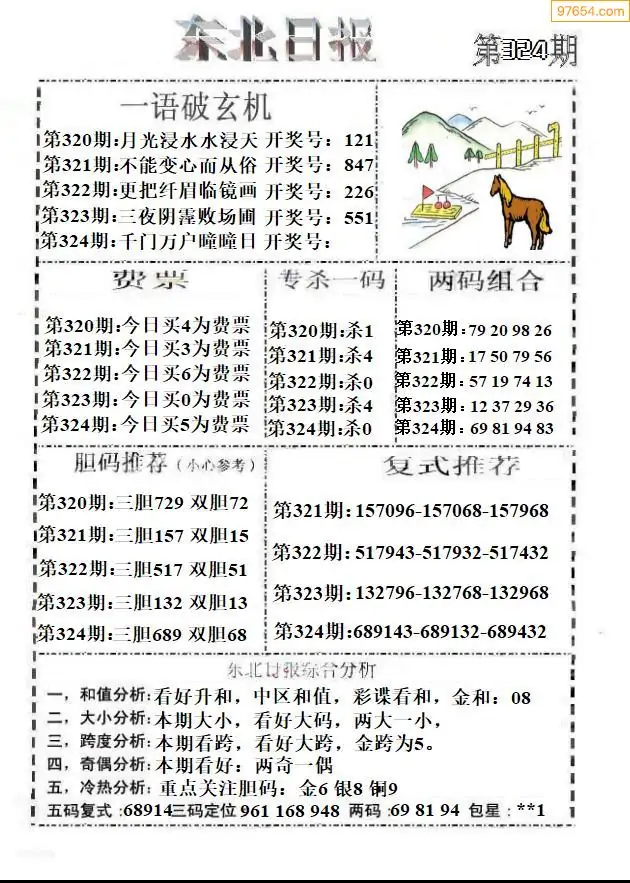 97654.com
东北日报
第324期
一语破玄机
第320期:月光浸水水浸天 开奖号: 121
第321期:不能变心而从俗 开奖号: 847
第322期:更把纤眉临镜画 开奖号: 226
第323期:三夜阴霪败场圃 开奖号: 551
第324期:千门万户曈曈日 开奖号:
费票
第320期:今日买4为费票
第321期:今日买3为费票
第322期:今日买6为费票
第323期:今日买0为费票
第324期:今日买5为费票
专杀一码
第320期:杀1
第321期:杀4
第322期:杀0
第323期:杀4
第324期:杀0
两码组合
第320期:79 20 98 26
第321期:17 50 79 56
第322期:57 19 74 13
第323期:12 37 29 36
第324期:69 81 94 83
胆码推荐(小心参考)
第320期:三胆729 双胆72
第321期:三胆157 双胆15
第322期:三胆517 双胆51
第323期:三胆132 双胆13
第324期:三胆689 双胆68
复式推荐
第321期:157096-157068-157968
第322期:517943-517932-517432
第323期:132796-132768-132968
第324期:689143-689132-689432
东北日报综合分析
一,和值分析:看好升和,中区和值,彩谍看和,金和:08
二、大小分析:本期大小,看好大码,两大一小,
三,跨度分析:本期看跨,看好大跨,金跨为5。
四,奇偶分析:本期看好:两奇一偶
五,冷热分析:重点关注胆码:金6 银8 铜9
五码复式:68914三码定位 961 168 948 两码:69 81 94 包星:**1